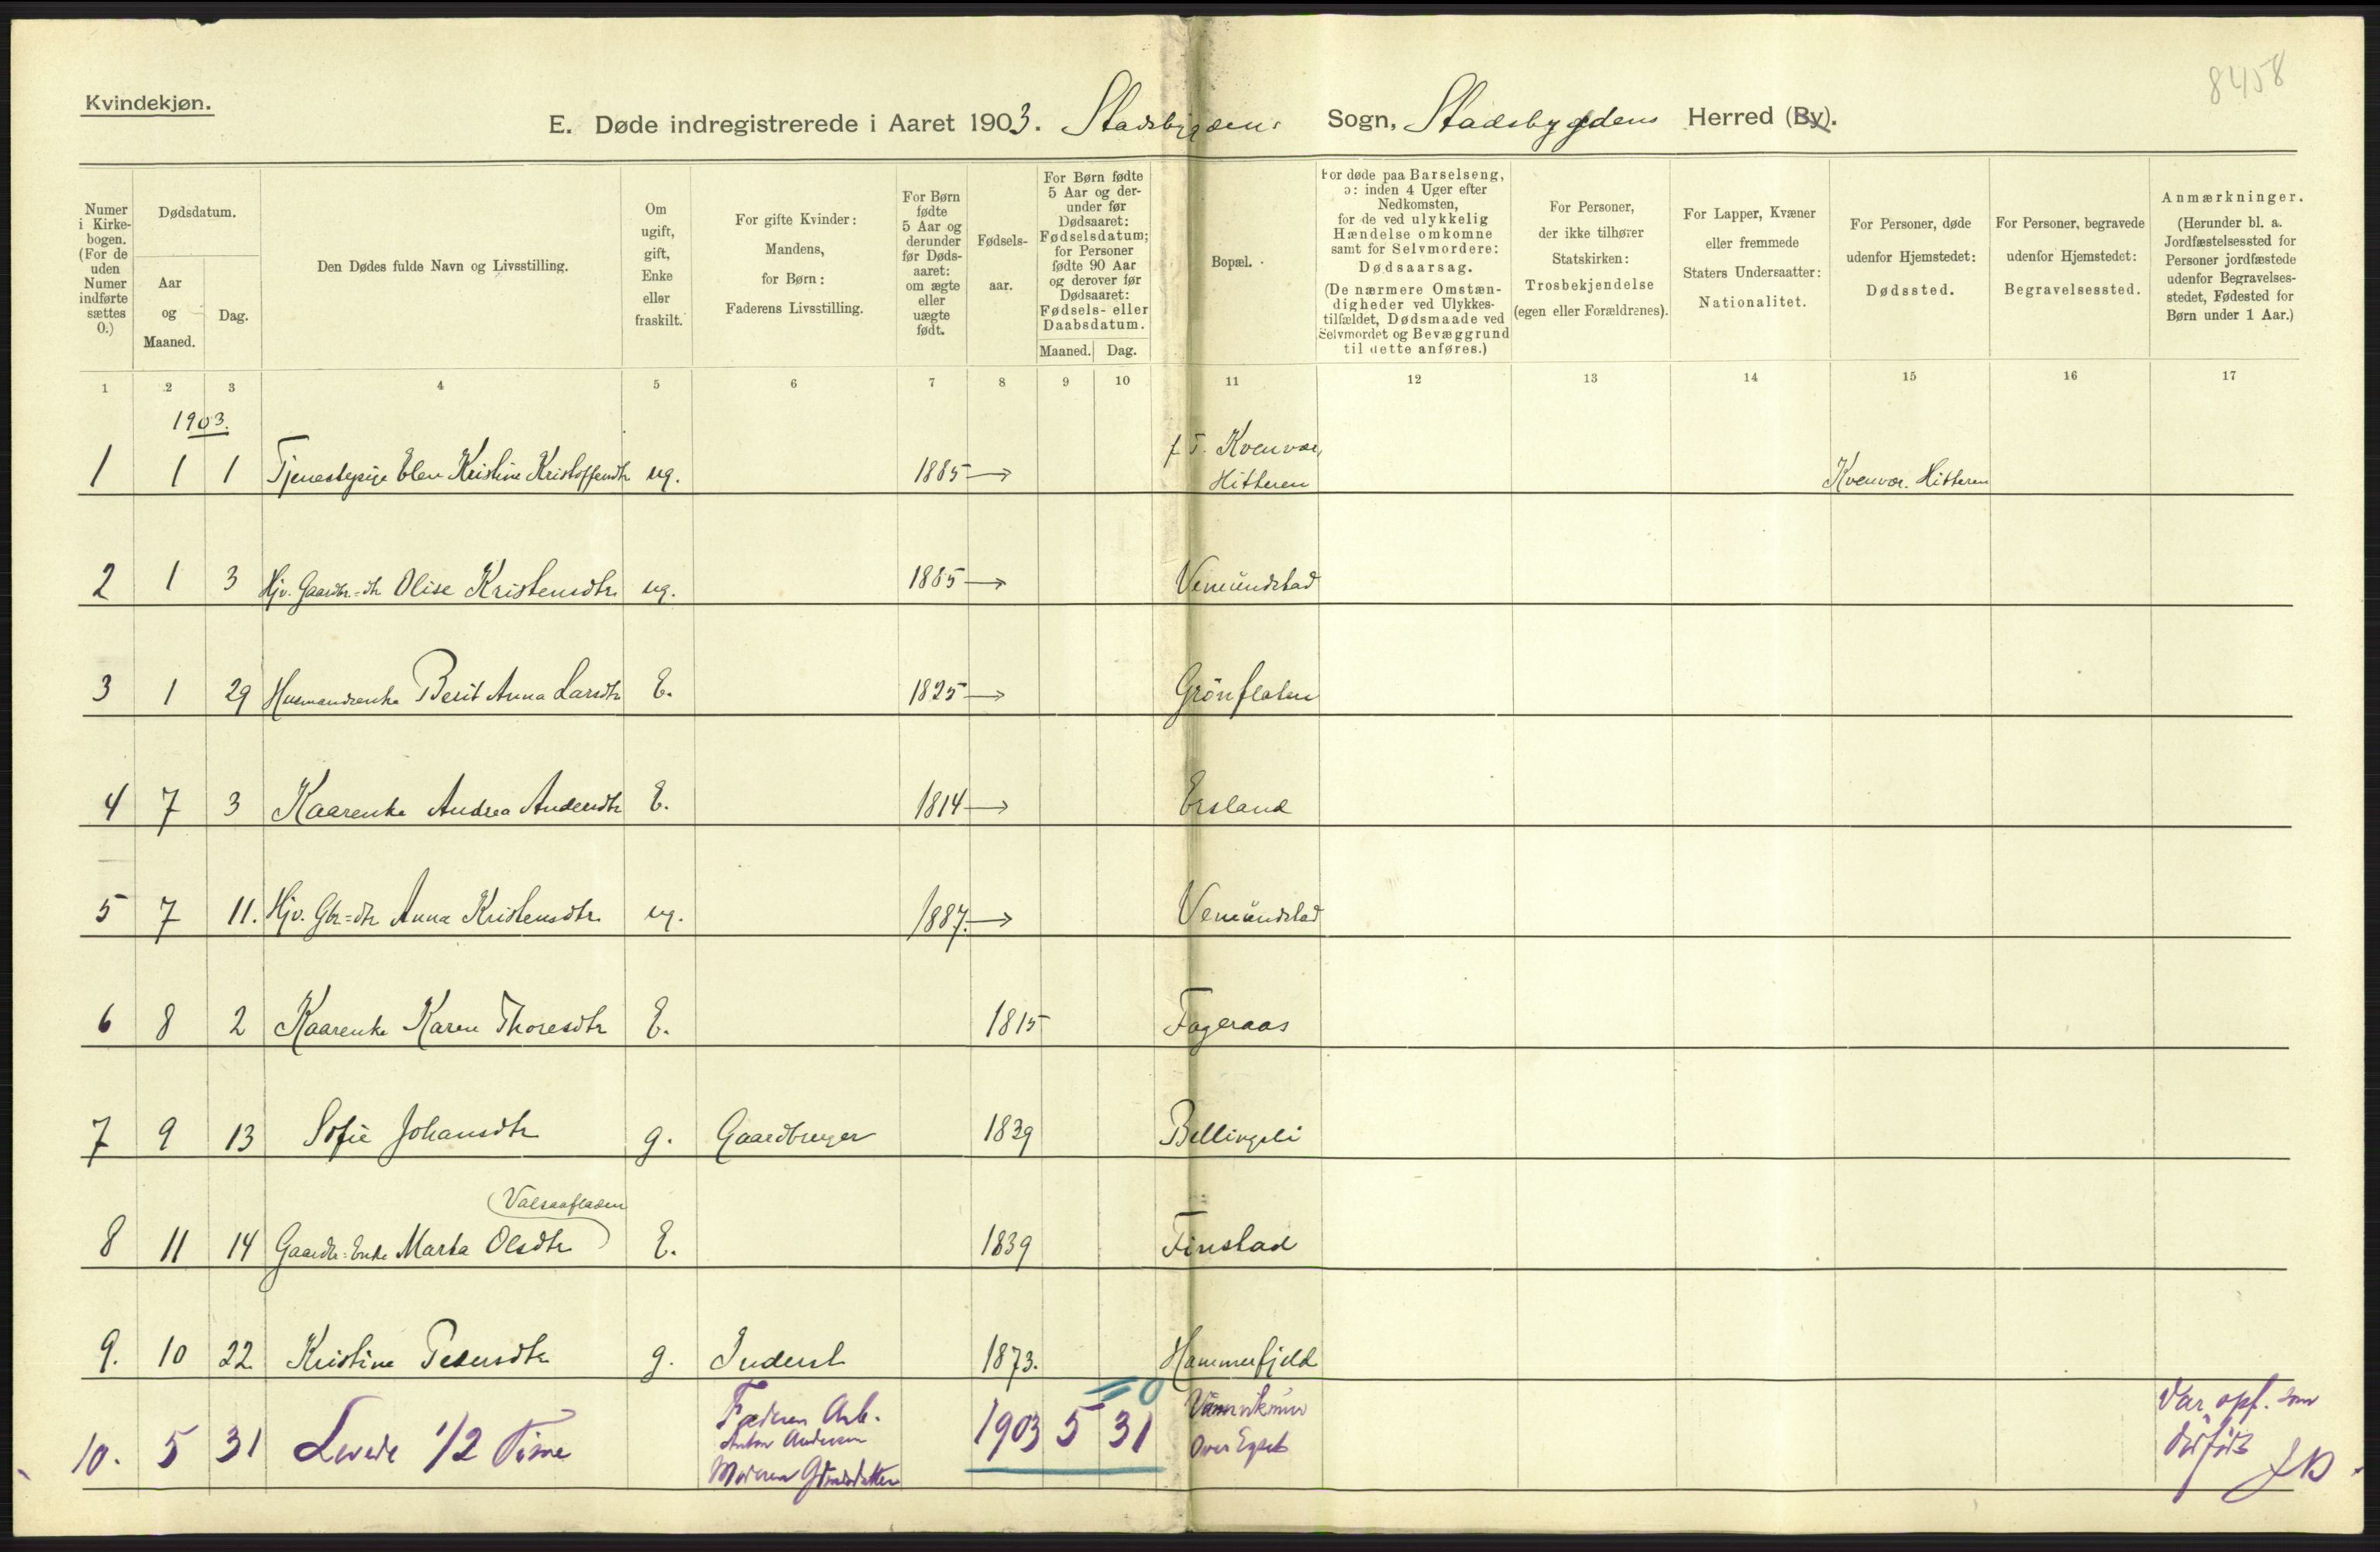 8458
Kvindekjøn.
E. Døde indregistrerede i Aaret 1903. Stadsbygdens Sogn, Stadsbygdens Herred (By).
Numer i Kirke-bogen. (For de uden Numer indførte sættes 0.)
Dødsdatum.
Aar og Maaned.
Dag.
Den Dødes fulde Navn og Livsstilling.
Om ugift, gift, Enke eller fraskilt.
For gifte Kvinder: Mandens, for Børn: Faderens Livsstilling.
For Børn fødte 5 Aar og derunder før Døds-aaret: om ægte eller uægte født.
Fødsels-aar.
For Børn fødte 5 Aar og der-under før Dødsaaret: Fødselsdatum; for Personer fødte 90 Aar og derover før Dødsaaret: Fødsels- eller Daabsdatum.
Maaned. Dag.
Bopæl.
For døde paa Barselseng, ɔ: inden 4 Uger efter Nedkomsten, for de ved ulykkelig Hændelse omkomne samt for Selvmordere: Dødsaarsag. (De nærmere Omstæn-digheder ved Ulykkes-tilfældet, Dødsmaade ved Selvmordet og Bevæggrund til dette anføres.)
For Personer, der ikke tilhører Statskirken: Trosbekjendelse (egen eller Forældrenes).
For Lapper, Kvæner eller fremmede Staters Undersaatter: Nationalitet.
For Personer, døde udenfor Hjemstedet: Dødssted.
For Personer, begravede udenfor Hjemstedet: Begravelsessted.
Anmærkninger. (Herunder bl. a. Jordfæstelsessted for Personer jordfæstede udenfor Begravelses-stedet, Fødested for Børn under 1 Aar.)
1 2 3 4 5 6 7 8 9 10 11 12 13 14 15 16 17
1903.
1 1 1 Tjenestepige Elen Kristine Kristoffersdtr ug. 1885 → f. T. Kvenvær, Hitteren Kvenvær. Hitteren
2 1 3 Hjv. Gaardbr.-dtr Olise Kristensdtr. ug. 1885 → Vemundstad
3 1 29 Husmandsenke Berit Anna Larsdtr E. 1825 → Grönflaten
4 7 3 Kaarenke Andrea Andersdtr E. 1814 → Ersland
5 7 11. Hjv. Gbr=dtr Anna Kristensdtr. ug. 1887. → Vemundstad
6 8 2 Kaarenke Karen Thoresdtr E. 1815 Fageraas
7 9 13 Sofie Johansdtr g. Gaardbruger 1839 Bellingsli
(Valsaafladen)
8 11 14 Gaardbr.-Enke Marta Olsdtr E. 1839 Finstad
9. 10 22 Kristine Pedersdtr g. Inderst 1873. Hammerfjeld
10. 5 31 Levede 1/2 Time Faderen Arb. Anton Andersen Moderen 1903 5 31 0 Over Var opf. som dødfødt